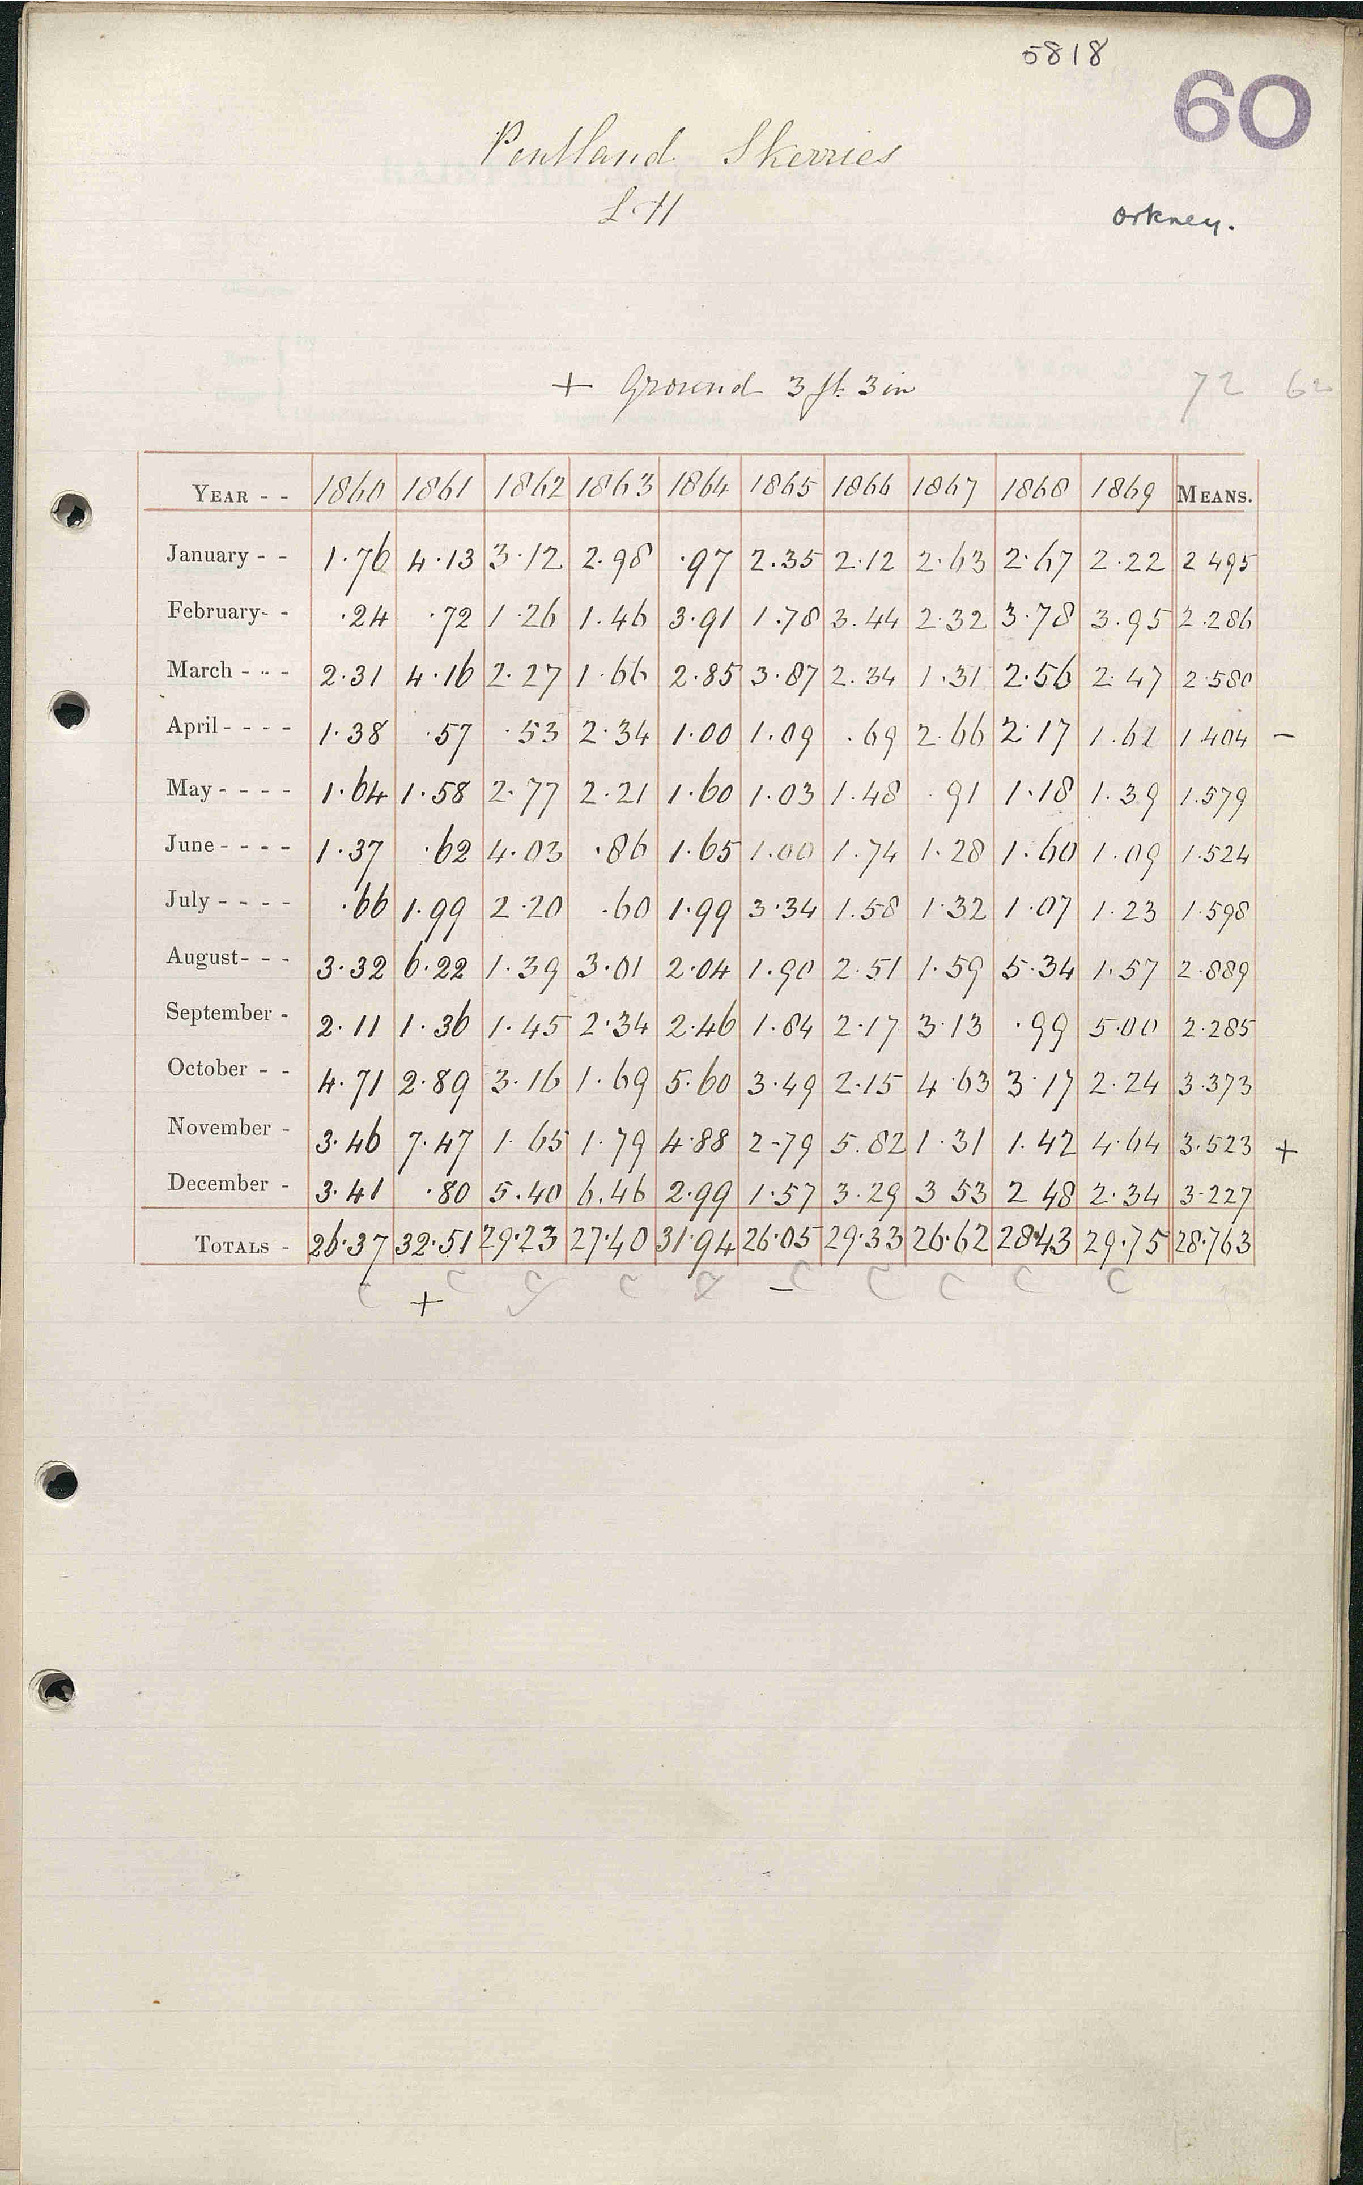 5818
60
Pentland Skerries
L.H
Orkney.
+ Ground 3 ft. 3 in
72 62
YEAR - - 1860 1861 1862 1863 1864 1865 1866 1867 1868 1869 MEANS.
January - - 1.76 4.13 3.12 2.98 .97 2.35 2.12 2.63 2.67 2.22 2 495
February- - .24 .72 1.26 1.46 3.91 1.78 3.44 2.32 3.78 3.95 2.286
March - - - 2.31 4.16 2.27 1.66 2.85 3.87 2.34 1.31 2.56 2.47 2.580
April - - - - 1.38 .57 .53 2.34 1.00 1.09 .69 2.66 2.17 1.61 1 404 -
May - - - - 1.64 1.58 2.77 2.21 1.60 1.03 1.48 .91 1.18 1.39 1.579
June - - - - 1.37 .62 4.03 .86 1.65 1.00 1.74 1.28 1.60 1.09 1.524
July - - - - .66 1.99 2.20 .60 1.99 3.34 1.58 1.32 1.07 1.23 1.598
August- - - 3.32 6.22 1.39 3.01 2.04 1.90 2.51 1.59 5.34 1.57 2.889
September - 2.11 1.36 1.45 2.34 2.46 1.84 2.17 3.13 .99 5.00 2.285
October - - 4.71 2.89 3.16 1.69 5.60 3.49 2.15 4.63 3.17 2.24 3.373
November - 3.46 7.47 1.65 1.79 4.88 2.79 5.82 1.31 1.42 4.64 3.523 +
December - 3.41 .80 5.40 6.46 2.99 1.57 3.29 3 53 2 48 2.34 3.227
TOTALS - 26.37 32.51 29.23 27.40 31.94 26.05 29.33 26.62 28.43 29.75 28.763
c c c c c c c c c
+ -